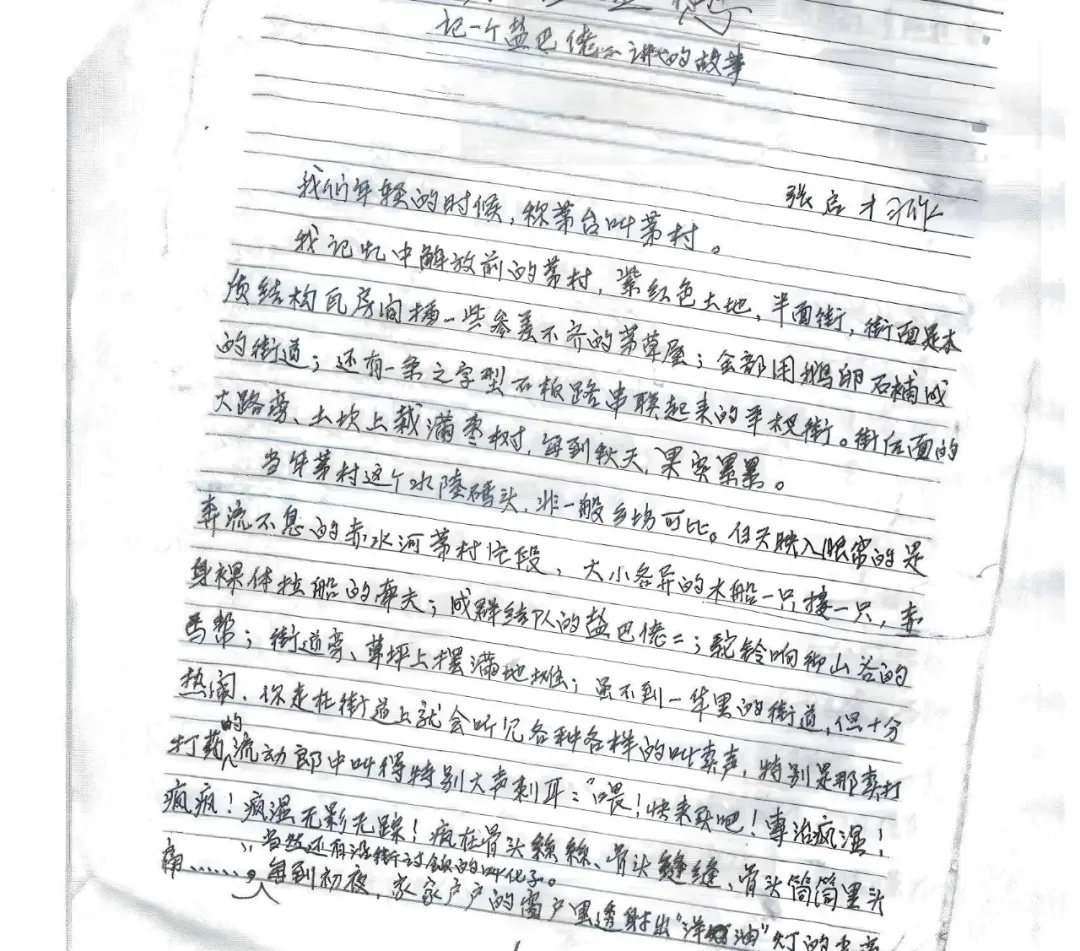 记一个盐巴佬二讲的故事
张启才习作
我们年轻的时候，称茅台叫茅村。
我记忆中解放前的茅村，紫红色土地，半面街，街面是木
质结构瓦房间插一些参差不齐的茅草屋；全部用鹅卵石铺成
的街道；还有一条之字型石板路串联起来的半边街。街后面的
大路旁、土坎上栽满枣树，每到秋天，果实累累。
当年茅村这个水陆码头，非一般乡场可比。白天映入眼帘的是
奔流不息的赤水河茅村段、大小各异的木船一只接一只，赤
身裸体拉船的牵夫；成群结队的盐巴佬二；驼铃响彻山谷的
马帮；街道旁、草坪上摆满地摊；虽不到一华里的街道，但十分
热闹、你走在街道上就会听见各种各样的叫卖声，特别是那卖打
打药的流动郎中叫得特别大声刺耳："喂！快来买吧！专治疯湿！
疯疯！疯湿无影无踪！疯在骨头丝丝、骨头缝缝、骨头筒筒里头
当然还有沿街讨饭的叫化子。
痛……"。每到初夜，家家户户的窗户里透射出"洋油"灯的